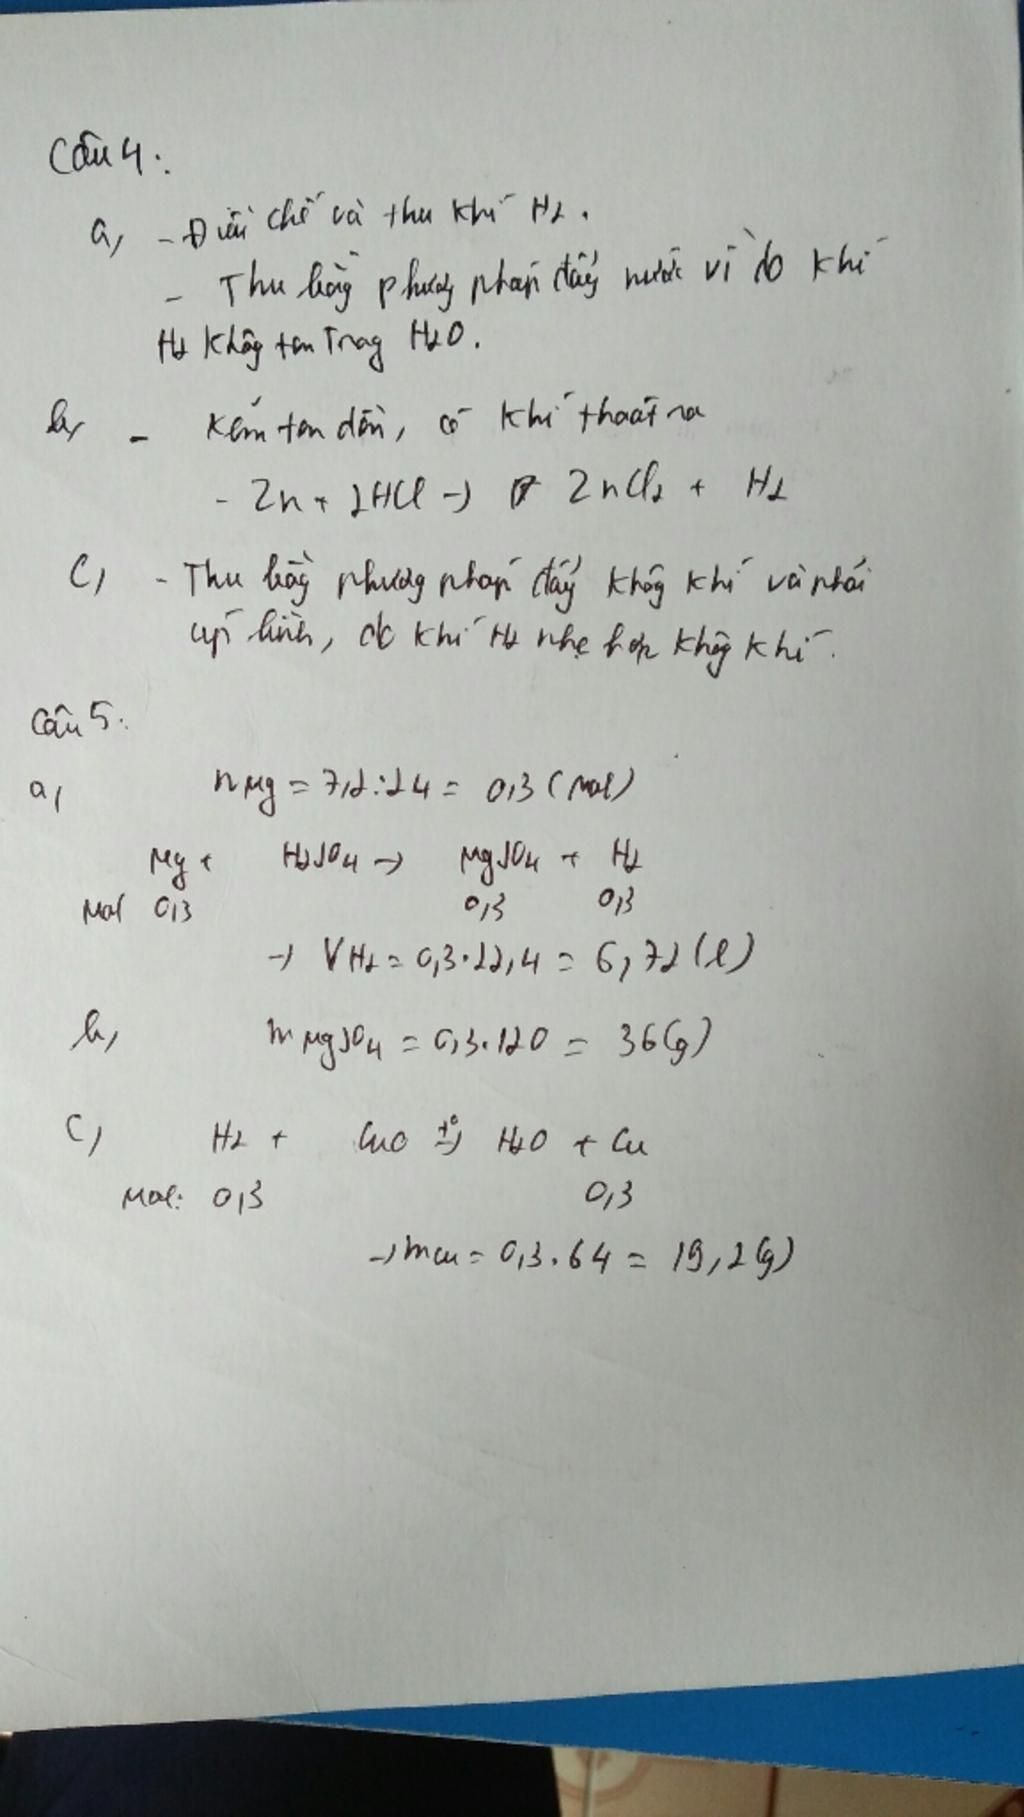 Câu 4:
a, - Điều chế và thu khí H2.
- Thu bằng phương pháp đẩy nước vì do khí
H2 không tan trong H2O.
b, - Kẽm tan dần, có khí thoát ra
- Zn + 2HCl → ZnCl2 + H2
C, - Thu bằng phương pháp đẩy không khí và phải
úp bình, do khí H2 nhẹ hơn không khí.
Câu 5:
a, nMg = 7,2:24 = 0,3 (mol)
Mg + H2SO4 → MgSO4 + H2
Mol 0,3 0,3 0,3
→ VH2 = 0,3.22,4 = 6,72 (l)
b, mMgSO4 = 0,3.120 = 36(g)
C, H2 + CuO t°→ H2O + Cu
Mol: 0,3 0,3
→ mCu = 0,3.64 = 19,2(g)